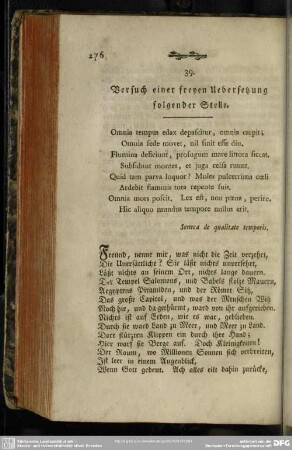 276
39.
Versuch einer freyen Uebersetzung
folgender Stelle.
Omnia tempus edax depascitur, omnia carpit;
Omnia sede movet, nil sinit esse diu.
Flumina deficiunt, profugum mare littora siccat,
Subsidunt montes, et juga celsa ruunt.
Quid tam parva loquor? Moles pulcerrima cœli
Ardebit flammis tota repente suis.
Omnia mors poscit. Lex est, non pœna, perire.
Hic aliquo mundus tempore nullus erit.
Seneca de qualitate temporis.
Freund, nenne mir, was nicht die Zeit verzehrt,
Die Unersättliche? Sie läßt nichts unversehrt,
Läßt nichts an seinem Ort, nichts lange dauern.
Der Tempel Salomons, und Babels stolze Mauern,
Aegyptens Piramiden, und der Römer Sitz,
Das große Capitol, und was der Menschen Witz
Noch schuf, und da gethürmt, ward von ihr aufgerieben.
Nichts ist auf Erden, wie es war, geblieben.
Durch sie ward Land zu Meer, und Meer zu Land.
Dort stürzen Klippen ein durch ihre Hand;
Hier warf sie Berge auf. Doch Kleinigkeiten!
Der Raum, wo Millionen Sonnen sich verbreiten,
Ist leer in einem Augenblick,
Wenn Gott gebeut. Ach alles eilt dahin zurücke,